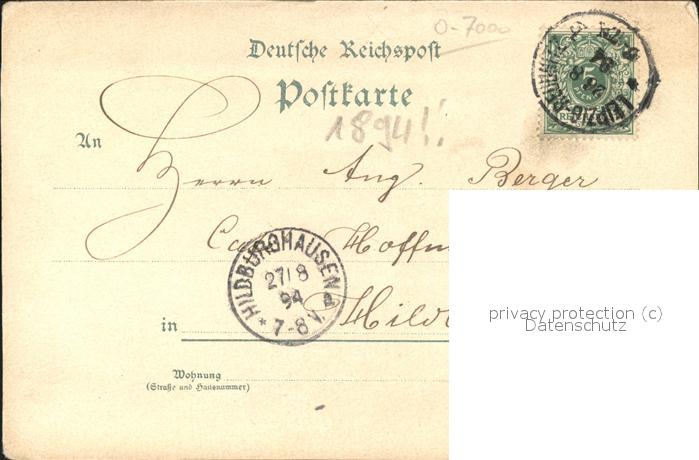 0-7000
Deutsche Reichspost
Postkarte
1894!!
An
Herrn Aug. Berger
Hoffm
HILDBURGHAUSEN
27/8
94
* 7-8 V.
in Hild
privacy protection (c)
Datenschutz
Wohnung
(Straße und Hausnummer)